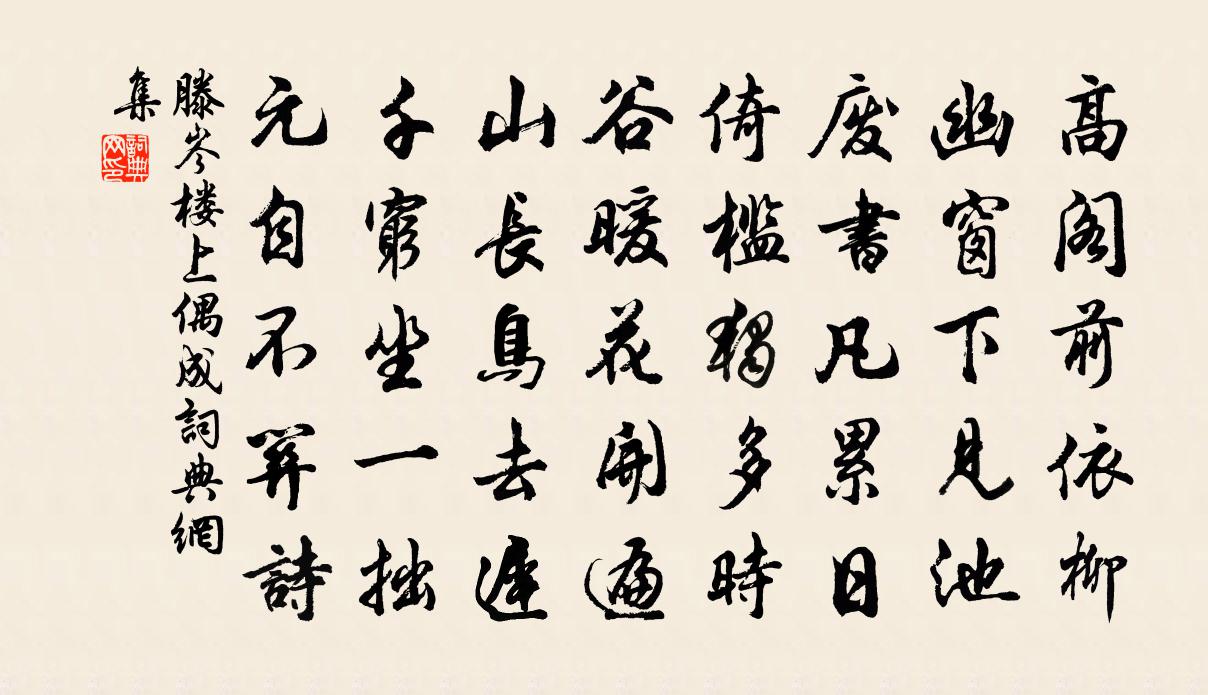 高閣前依柳
幽窗下見池
廢書凡累日
倚檻獨多時
谷暖花開遍
山長鳥去遲
千窮坐一拙
元自不算詩
滕岑楼上偶成詞典網
集
詞典
网印